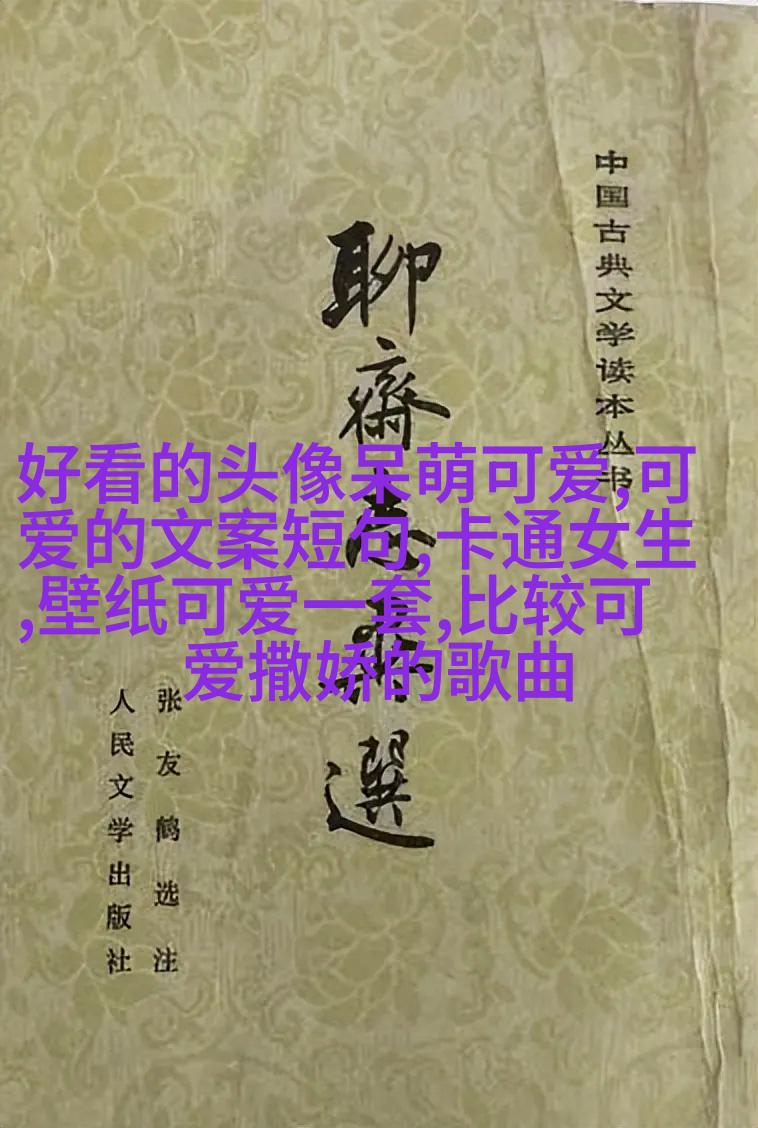 中国古典文学读本丛书
聊齋志異選
张友鹤选注
人民文学出版社
好看的头像呆萌可爱,可
爱的文案短句,卡通女生
,壁纸可爱一套,比较可
爱撒娇的歌曲